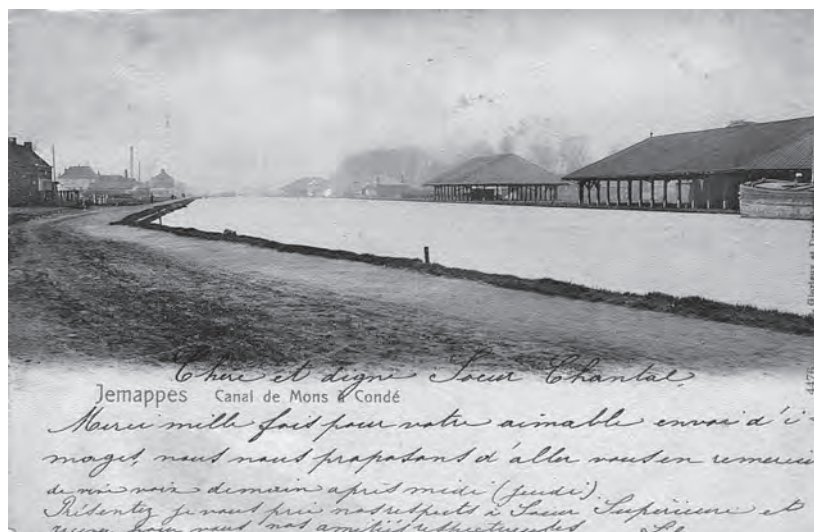 Chère et digne Soeur Chantal,
Jemappes Canal de Mons à Condé
Merci mille fois pour votre aimable envoi d'i-
mages, nous nous proposons d'aller vous en remercier
de vive voix demain après midi (jeudi)
Présentez je vous prie nos respects à Soeur Supérieure et
pour vous nos amitiés respectueuses
4476